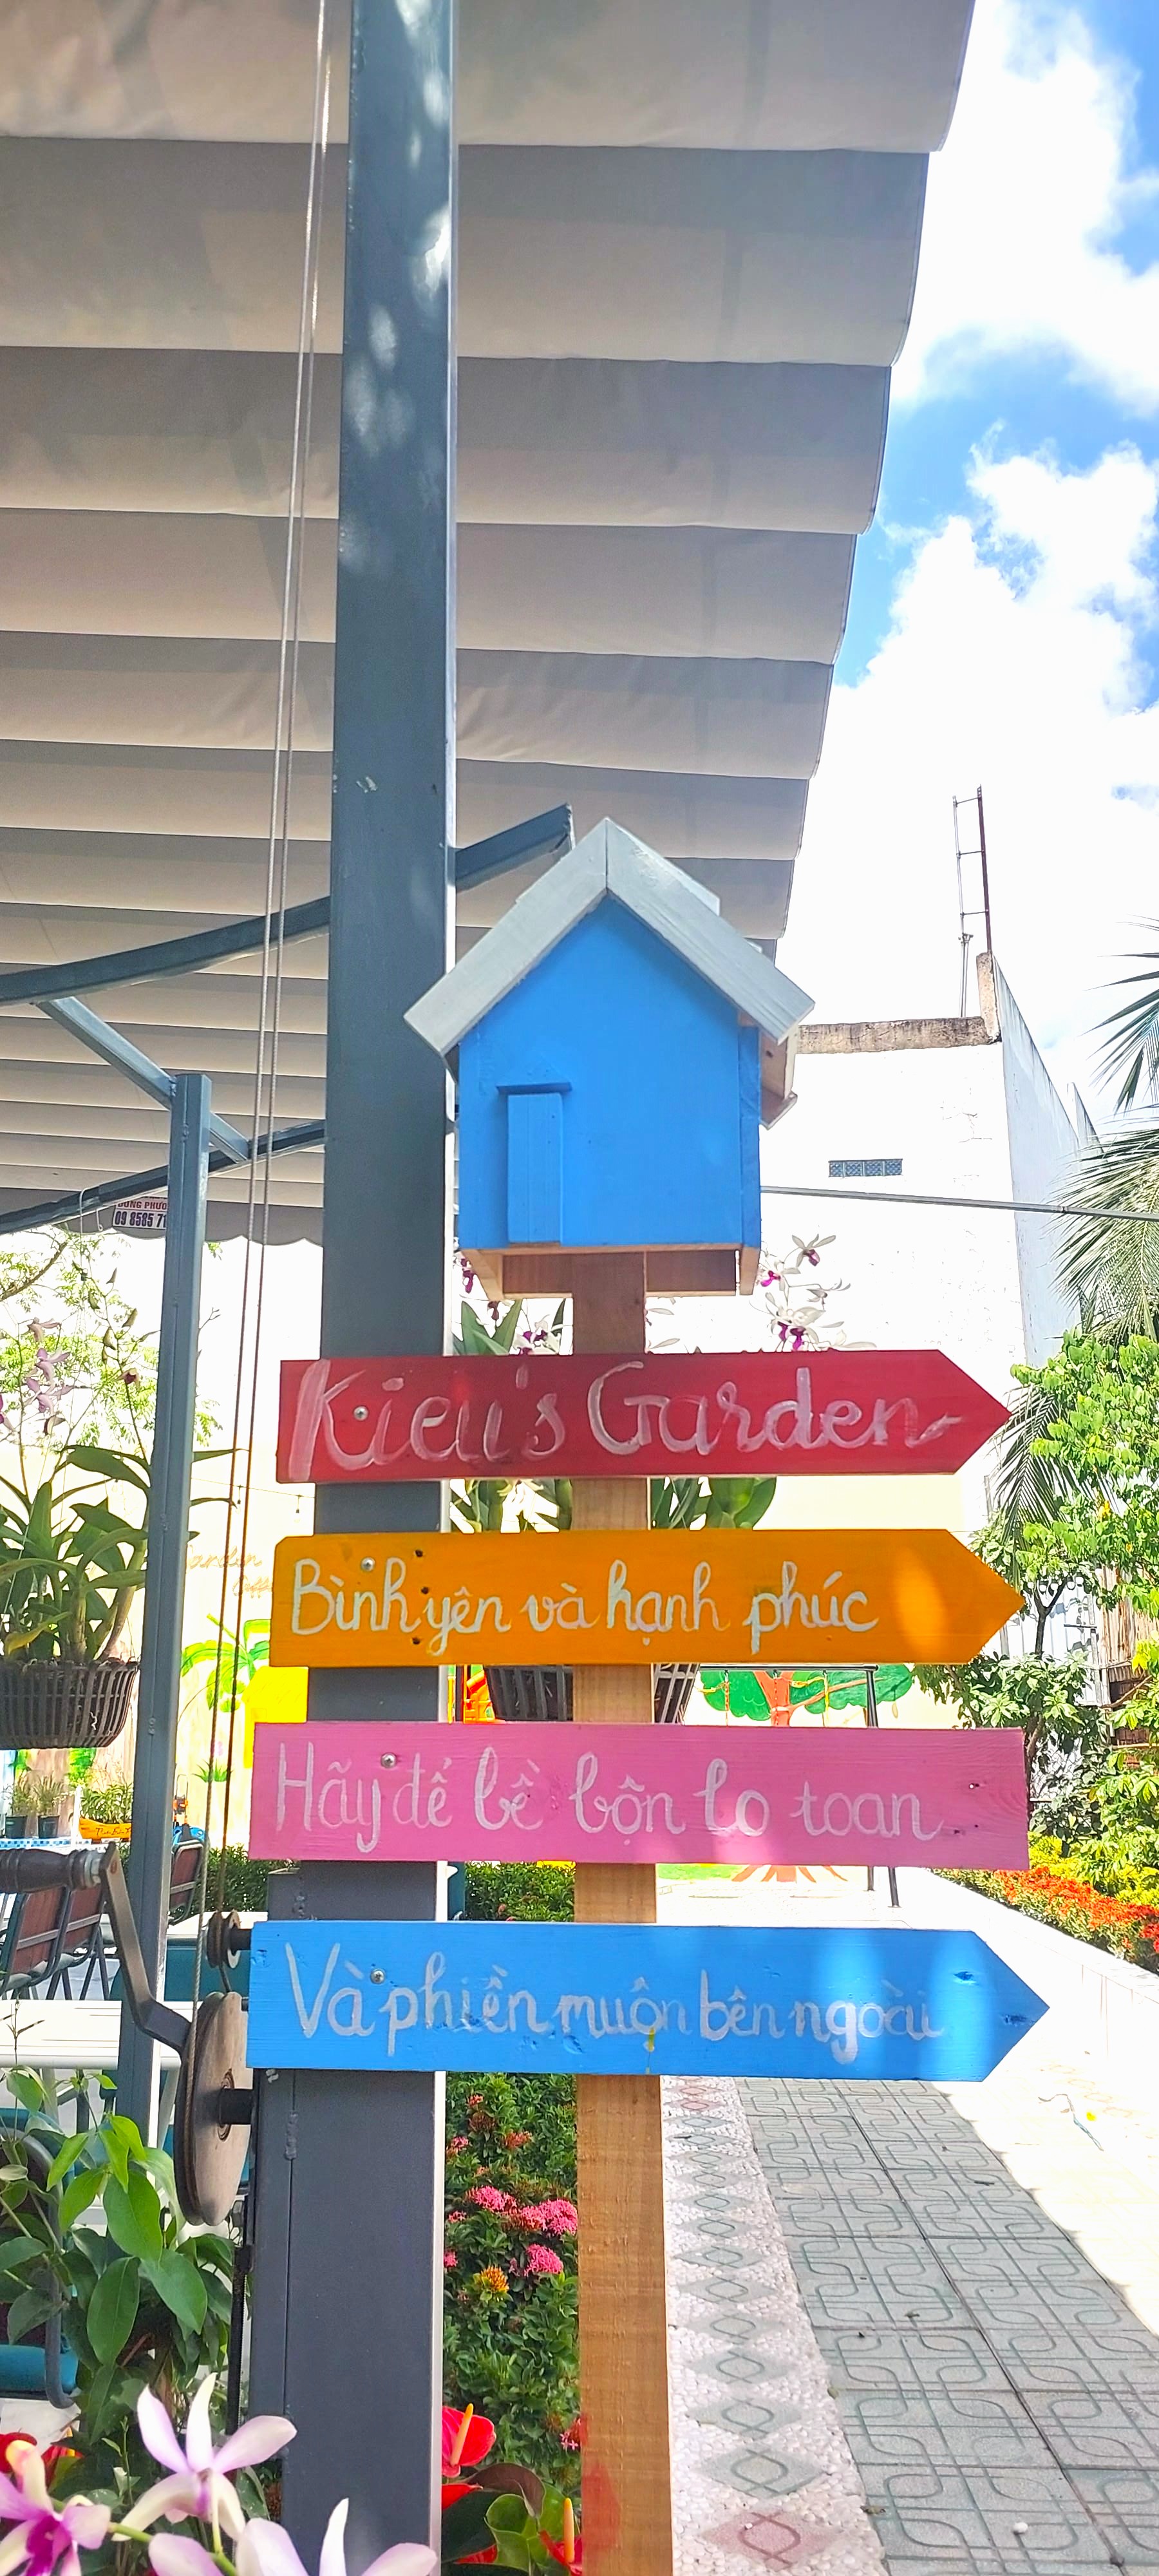 09 8585 7
Kieu's Garden
Bình yên và hạnh phúc
Hãy để bề bộn lo toan
Và phiền muộn bên ngoài
Garden